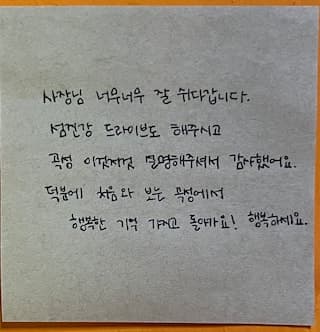 사장님 너무너무 잘 쉬다갑니다.
섬진강 드라이브도 해주시고
곡성 이것저것 설명해주셔서 감사했어요.
덕분에 처음와 보는 곡성에서
행복한 기억 가지고 돌아가요! 행복하세요.